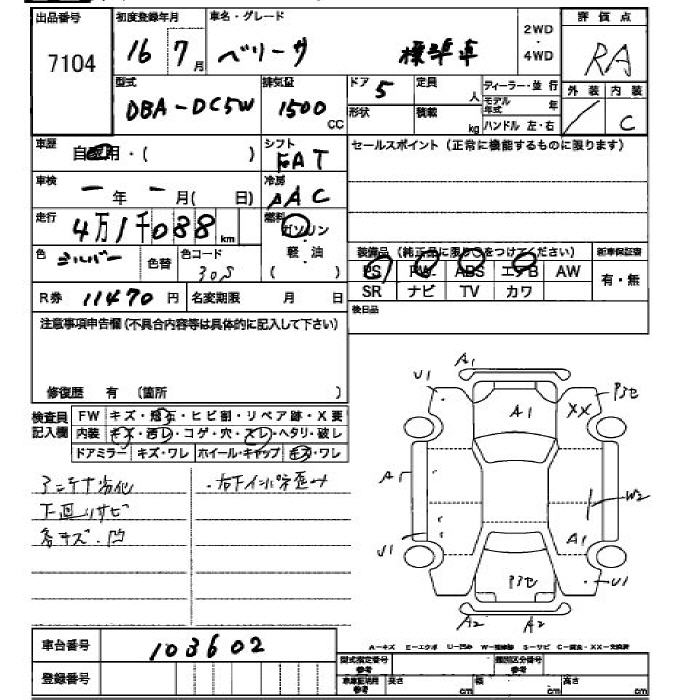 出品番号 初度登録年月 車名・グレード 2WD・4WD 評価点
7104 16 7月 ベリーサ 標準車 RA
型式 排気量 ドア 5 定員 人 ディーラー・並行 外装 内装
DBA-DC5W 1500 CC 形状 積載 kg モデル年式 年 ハンドル 左・右 / C
車歴 自家用・( ) シフト FAT セールスポイント(正常に機能するものに限ります)
車検 ー年ー月( 日) 冷房 AAC
走行 4万1千088km 燃料 ガソリン・軽油( )
色 シルバー 色替 色コード 30S
装備品(純正品に限り○をつけてください) 新車保証書
PS PW ABS エアB AW 有・無
SR ナビ TV カワ
R券 11470円 名変期限 月 日 後日品
注意事項申告欄(不具合内容等は具体的に記入して下さい)
修復歴 有 (箇所 )
検査員記入欄 FW キズ・飛石・ヒビ割・リペア跡・X要
内装 キズ・汚レ・コゲ・穴・スレ・ヘタリ・破レ
ドアミラー キズ・ワレ ホイール・キャップ キズ・ワレ
アンテナ劣化
下廻りサビ
各キズ・凹
A1
U1 P3セ
A1 XX
A1 W2
U1 A1
P3セ U1
A2 A2
車台番号 103602
登録番号
A-キズ E-エクボ U-凹み W-補修跡 S-サビ C-腐食・XX-交換済
型式指定番号 参考 類別区分番号 参考
車車証明用 参考 長さ cm 幅 cm 高さ cm